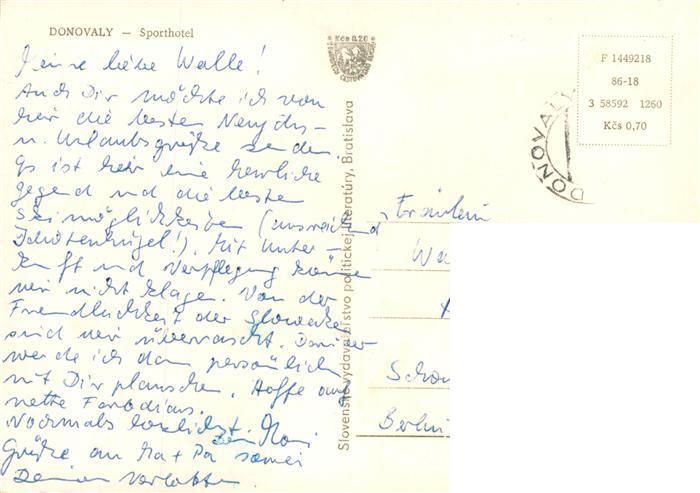 DONOVALY — Športhotel
Meine liebe Walle!
Auch Dir möchte ich von
hier die besten Neujahrs-
u. Urlaubsgrüße senden.
Es ist hier eine herrliche
Gegend und die besten
Skimöglichkeiten (ausreichend
Idiotenhügel!). Mit Unter-
kunft und Verpflegung können
wir nicht klagen. Von der
Freundlichkeit der Slowaken
sind wir überrascht. Darüber
werde ich dann persönlich
mit Dir plauschen. Hoffe auf
nette Farbdias.
Nochmals herzlichst
Grüße an Ma + Pa sowie
Deinen Verlobten.
Kčs 0,20
Slovenské vydavateľstvo politickej literatúry, Bratislava
F 1449218
86-18
3 58592 1260
Kčs 0,70
DONOVALY
Fräulein
Wa
Berlin